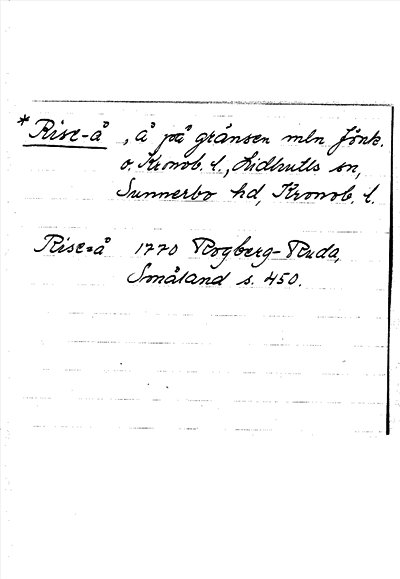 *Rise-å , å på gränsen mln Jönk.
o. Kronob. l., Lidhults sn,
Sunnerbo hd, Kronob. l.
Rise=å 1770 Rogberg-Ruda,
Småland s. 450.